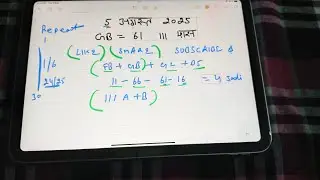 5 अगस्त 2025
Repeat
GB = 61 111 पास
(LIKE) (SHARE) SUBSCRIBE
1
11/6
(FB + GB) + GL + DS
24/25
11 - 66 - 61 - 16 = 4 Jodi
30
(111 A + B)